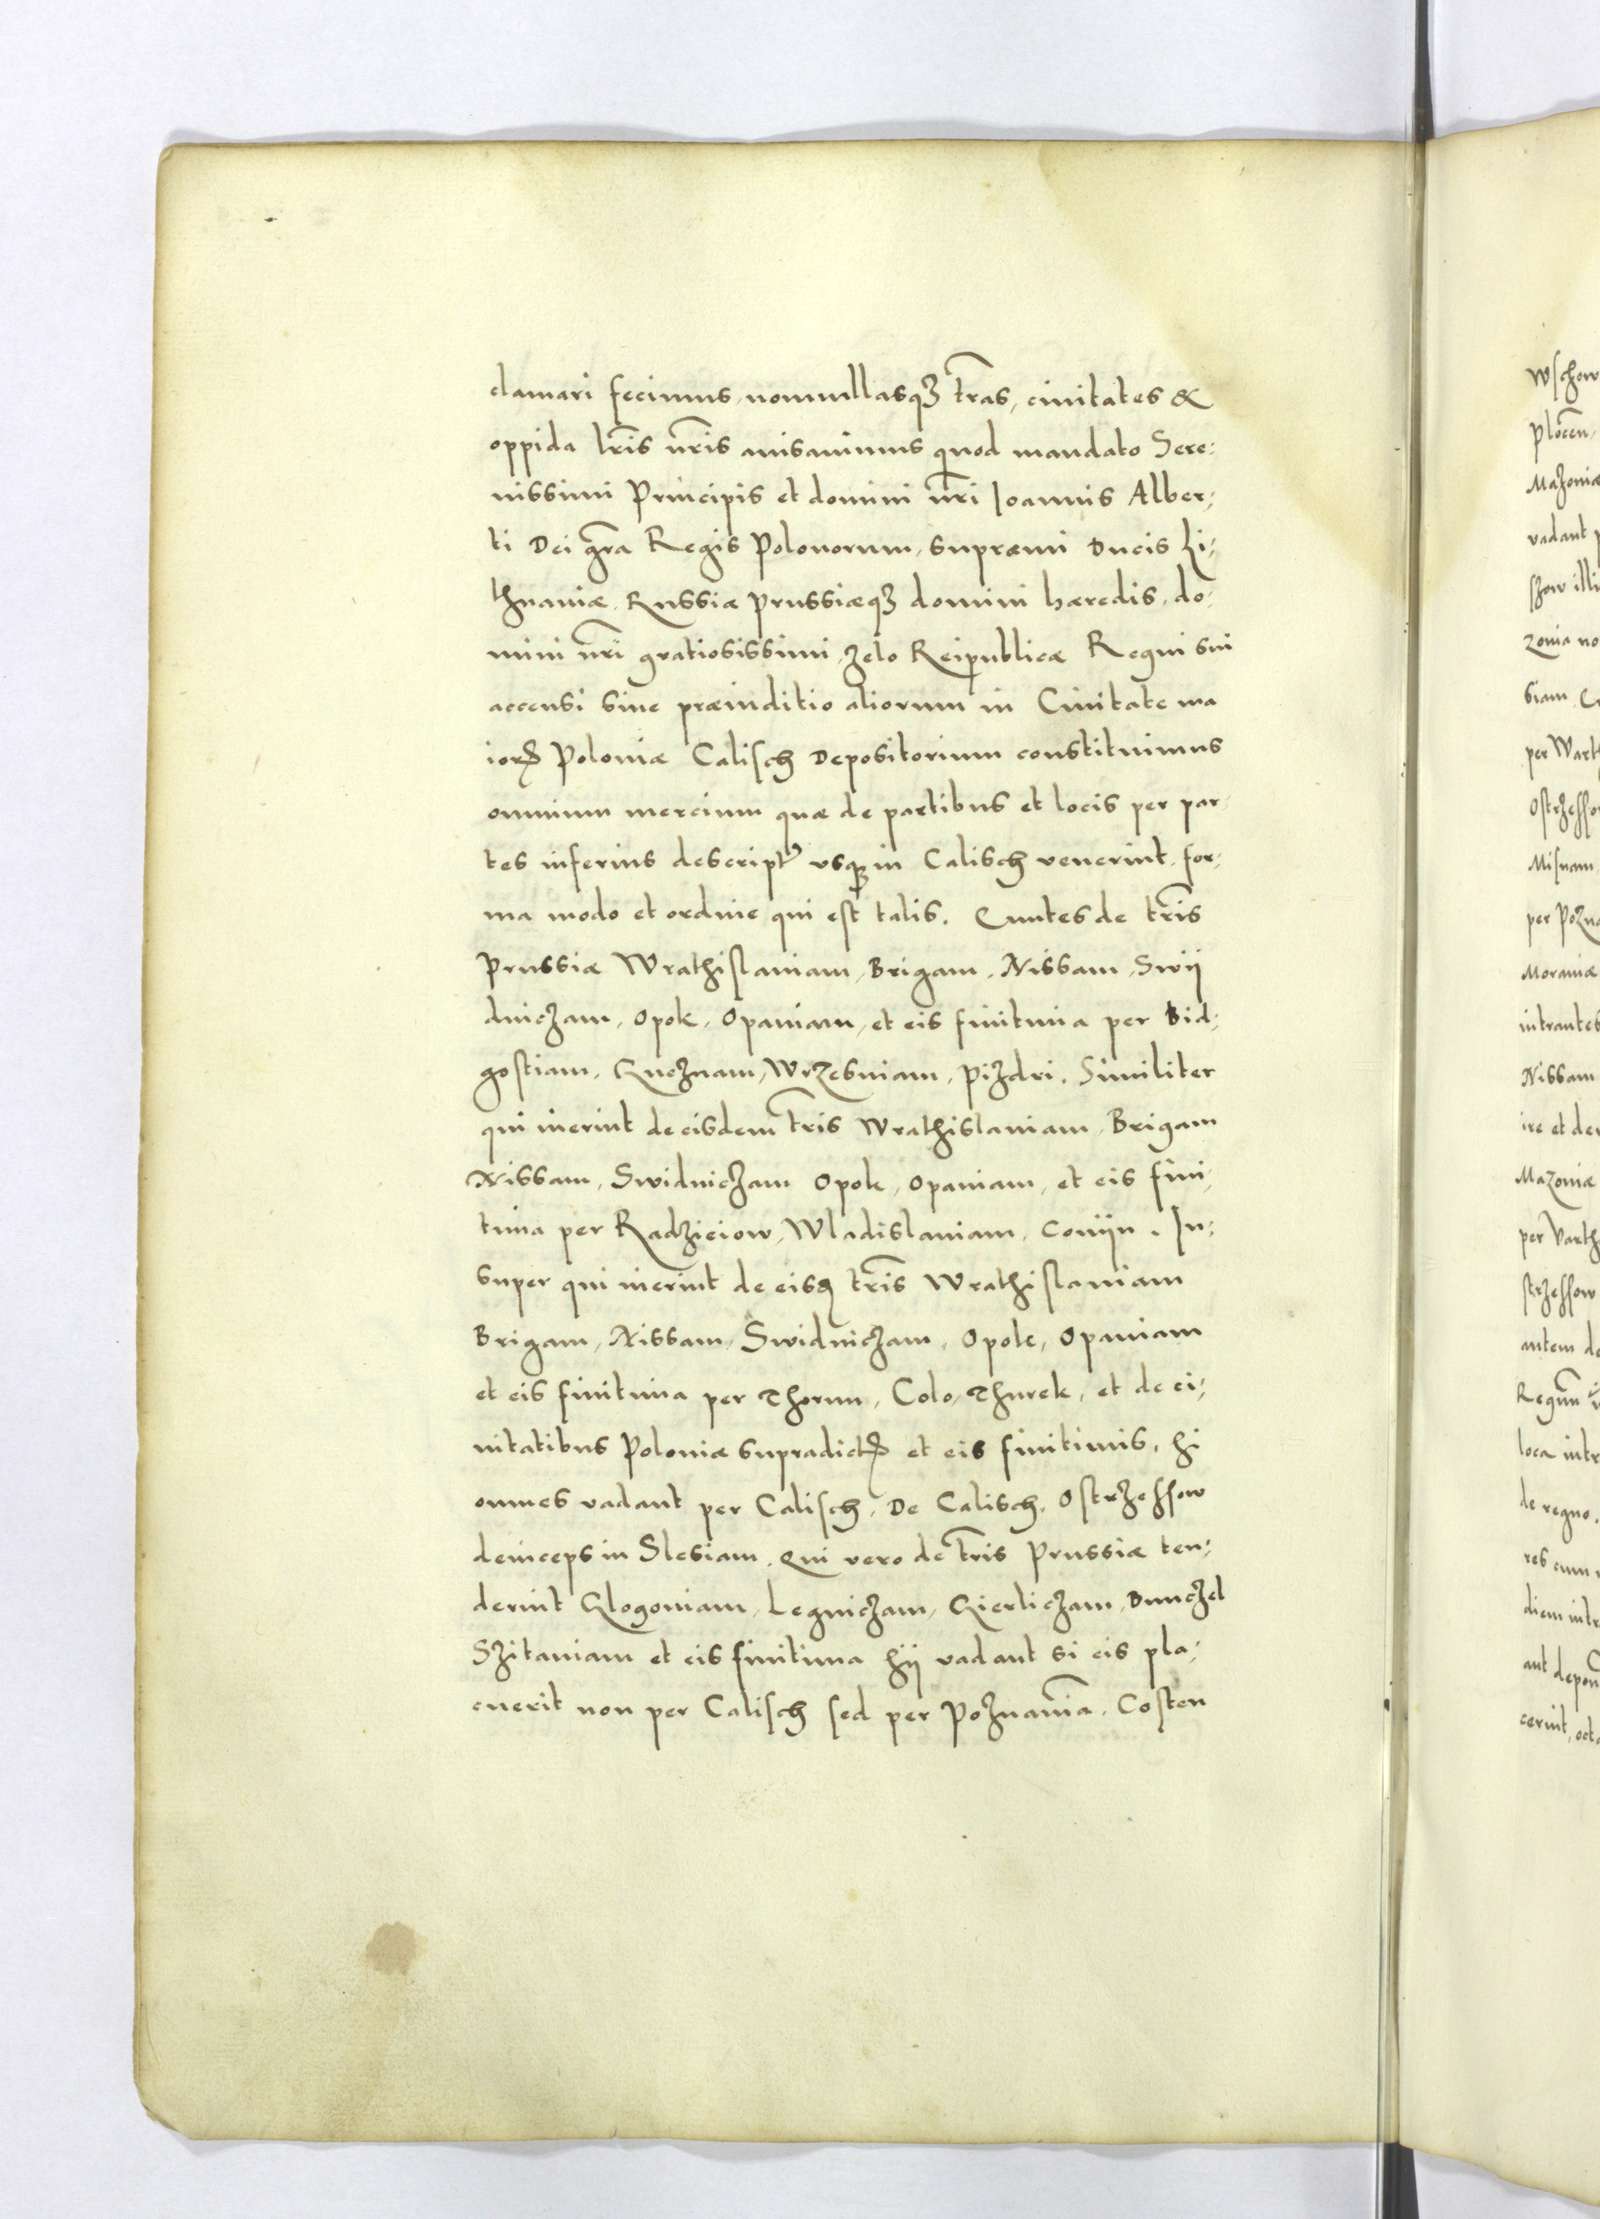 clamari fecimus, nonnullasqz tras, ciuitates &
oppida lris nris auisauimus quod mandato Sere-
nissimi Principis et domini nri Ioannis Alber-
ti Dei gra Regis Polonorum, supraemi Ducis Li-
thuaniæ Russiæ Prussiæqz domini hæredis, do-
mini nri gratiosissimi, zelo Reipublicæ Regni sui
accensi sine præiuditio aliorum in Ciuitate ma
iorꝝ Poloniæ Calisch Depositorium constituimus
omnium mercium quæ de partibus et locis per par-
tes inferius descript usqz in Calisch venerint, for-
ma modo et ordine qui est talis. Euntes de tris
Prussiæ Wrathislauiam, Brigam, Nissam, Swij
dniczam, Opok, Opauiam, et eis finituna per Bid-
gostiam, Gneznam, Wrzesniam, Pizdri. Similiter
qui inerint de eisdem tris Wrathislauiam, Brigam
Nissam, Swidniczam Opole, Opauiam, et eis fini-
tima per Radzieiow, Wladislauiam, Conijn. In-
super qui inerint de eisd tris Wrathislauiam
Brigam, Nissam, Swidniczam, Opole, Opauiam
et eis finitima per Thorun, Colo, Thurek, et de ci-
uitatibus Poloniæ supradictꝝ et eis finitimis, hi
omnes vadant per Calisch, De Calisch, Ostrzessow
deinceps in Slesiam. Qui vero de tris Prussiæ ten-
derint Glogouiam, Legniczam, Gierliczam, Bunczel
Szitauiam et eis finitima hij vadant si eis pla-
cuerit non per Calisch sed per Poznania, Costen
Wschow
Plocen,
Mazoniæ
vadant
zonia no
siam
per Wart
Ostrzesso
Misnam
per Pozna
Morauiæ
intrantes
Nissam
ire et de
Mazouiæ
per Varth
strzessow
autem de
Regnu
loca intr
de regno,
res cum
diem intr
aut depon
cerint, octa